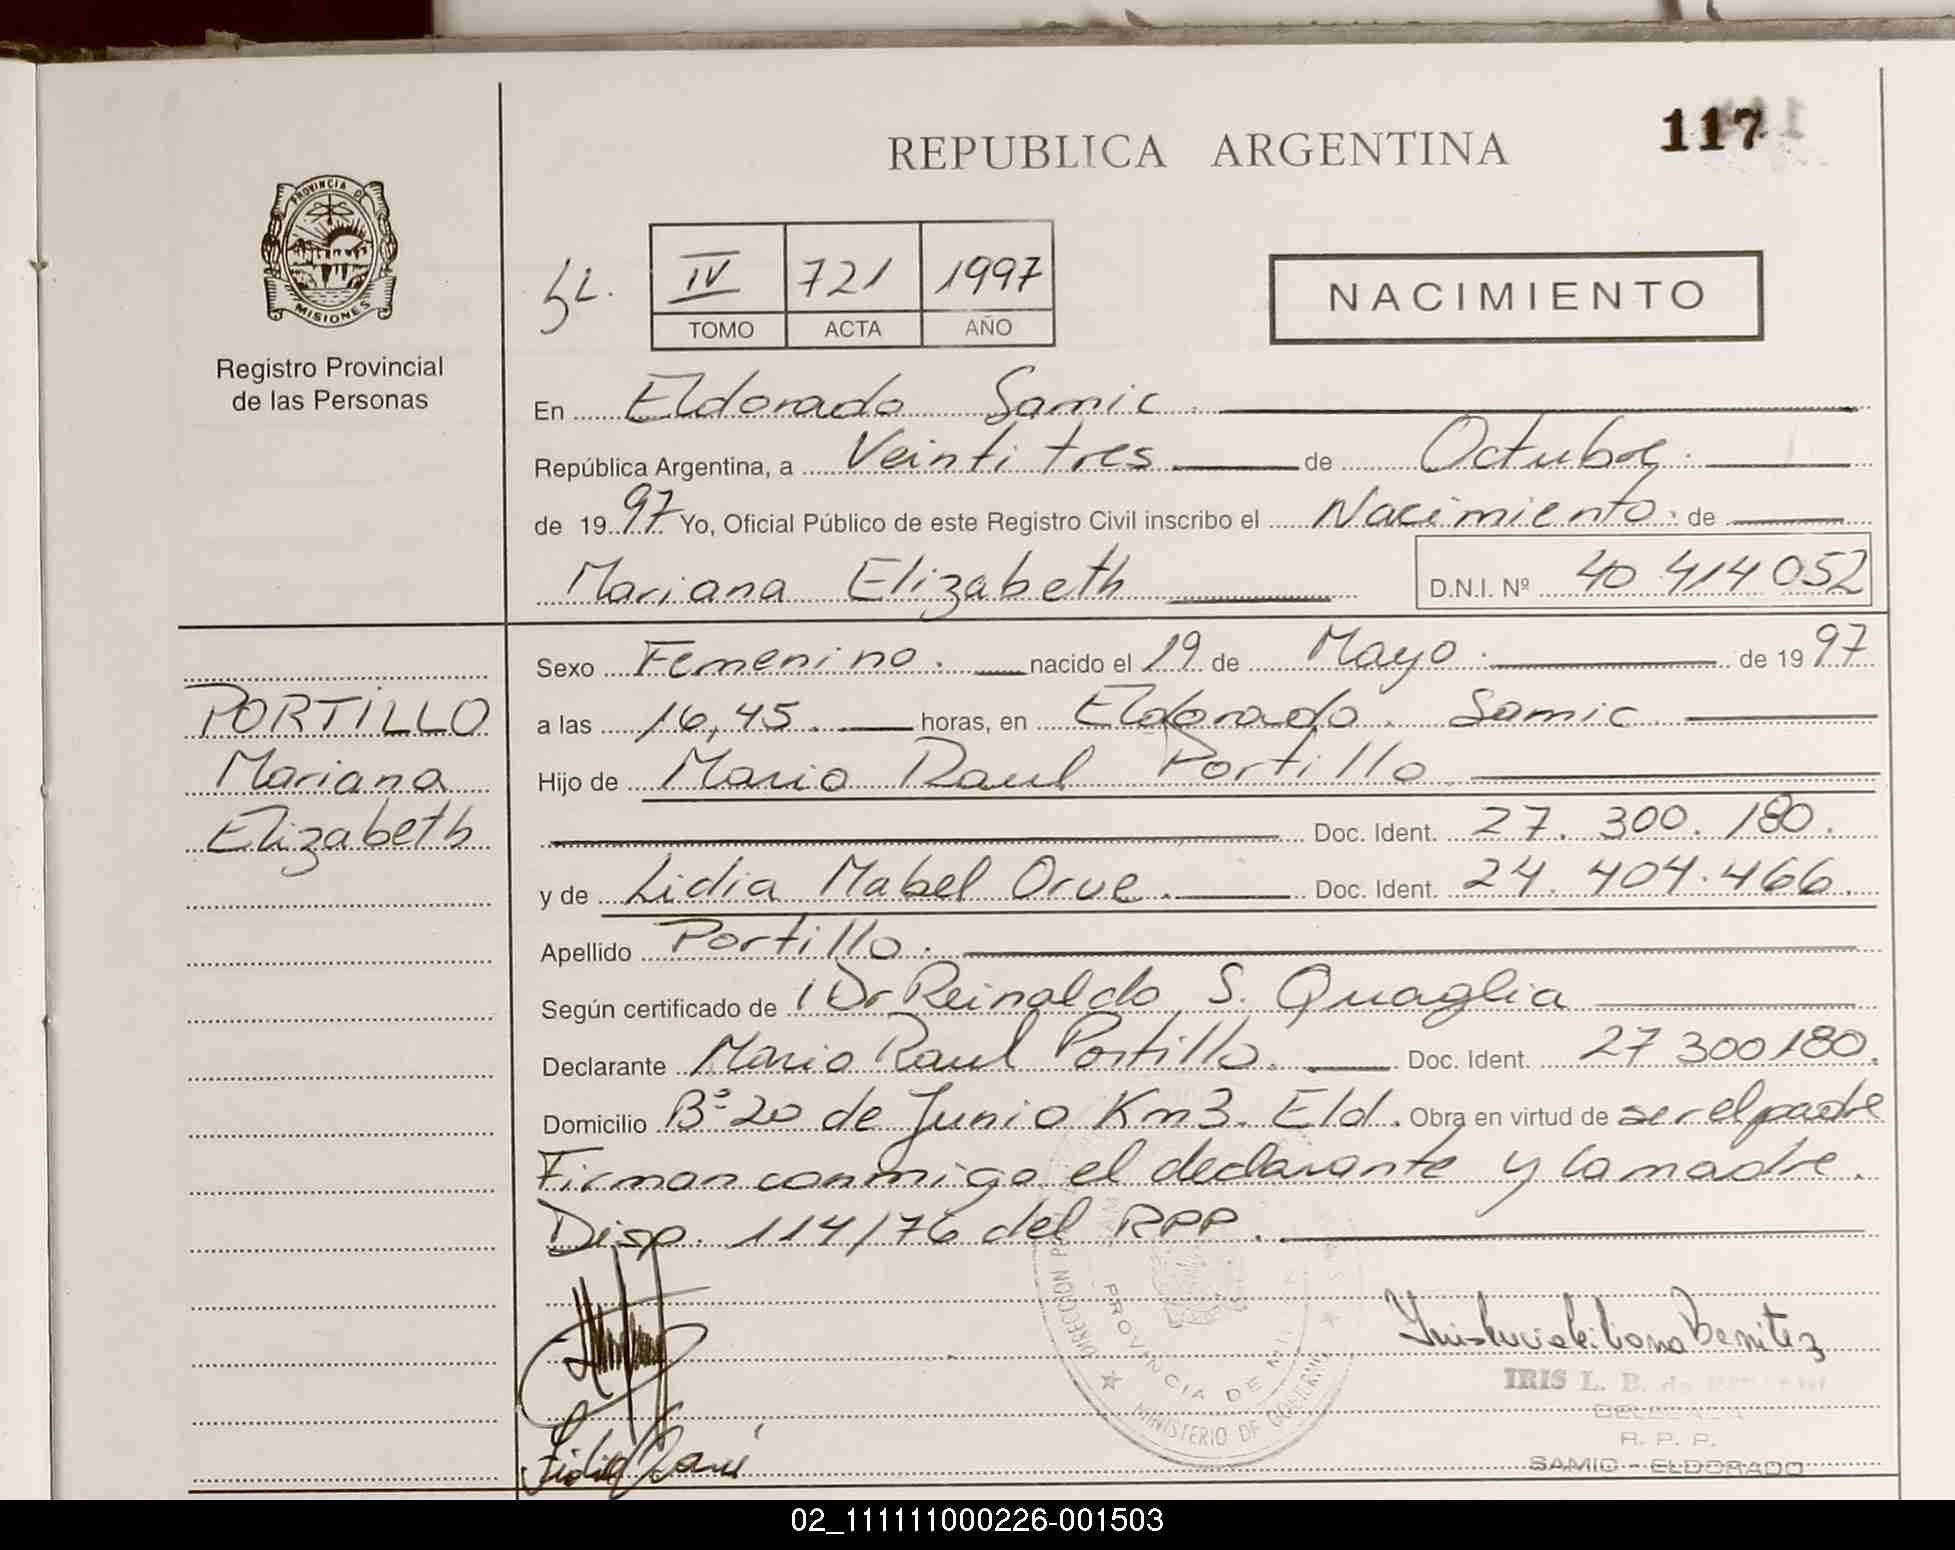 117
REPUBLICA ARGENTINA
PROVINCIA DE
MISIONES
Registro Provincial
de las Personas
IV 721 1997
TOMO ACTA AÑO
NACIMIENTO
En Eldorado Samic
República Argentina, a Veintitres de Octubre
de 1997 Yo, Oficial Público de este Registro Civil inscribo el Nacimiento. de
Mariana Elizabeth D.N.I. Nº 40 414 052
Sexo Femenino. nacido el 19 de Mayo. de 1997
PORTILLO
Mariana
Elizabeth
a las 16,45. horas, en Eldorado. Samic
Hijo de Mario Raul Portillo
Doc. Ident. 27.300.180.
y de Lidia Mabel Orue. Doc. Ident. 24.404.466.
Apellido Portillo.
Según certificado de Dr Reinaldo S. Quaglia
Declarante Mario Raul Portillo. Doc. Ident. 27 300 180.
Domicilio Bº 20 de Junio Km 3. Eld. Obra en virtud de ser el padre
Firman conmigo el declarante y la madre.
Disp. 114/76 del RPP.
DIRECCION
PROVINCIA DE
MINISTERIO DE GOBIERNO
Benitez
IRIS L. B. de
R. P. P.
SAMIC - ELDORADO
Lidia
02_111111000226-001503